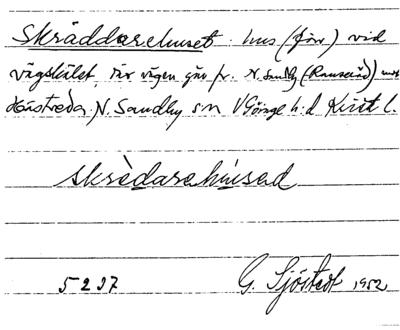 Skräddarehuset hus (förr) vid
vägskälet, där vägen går fr. N. Sandby (Ranseröd) mot
Hästveda. N. Sandby sn V Göinge h:d Krist l.
skrèdarehúsed
5237 G. Sjöstedt 1952